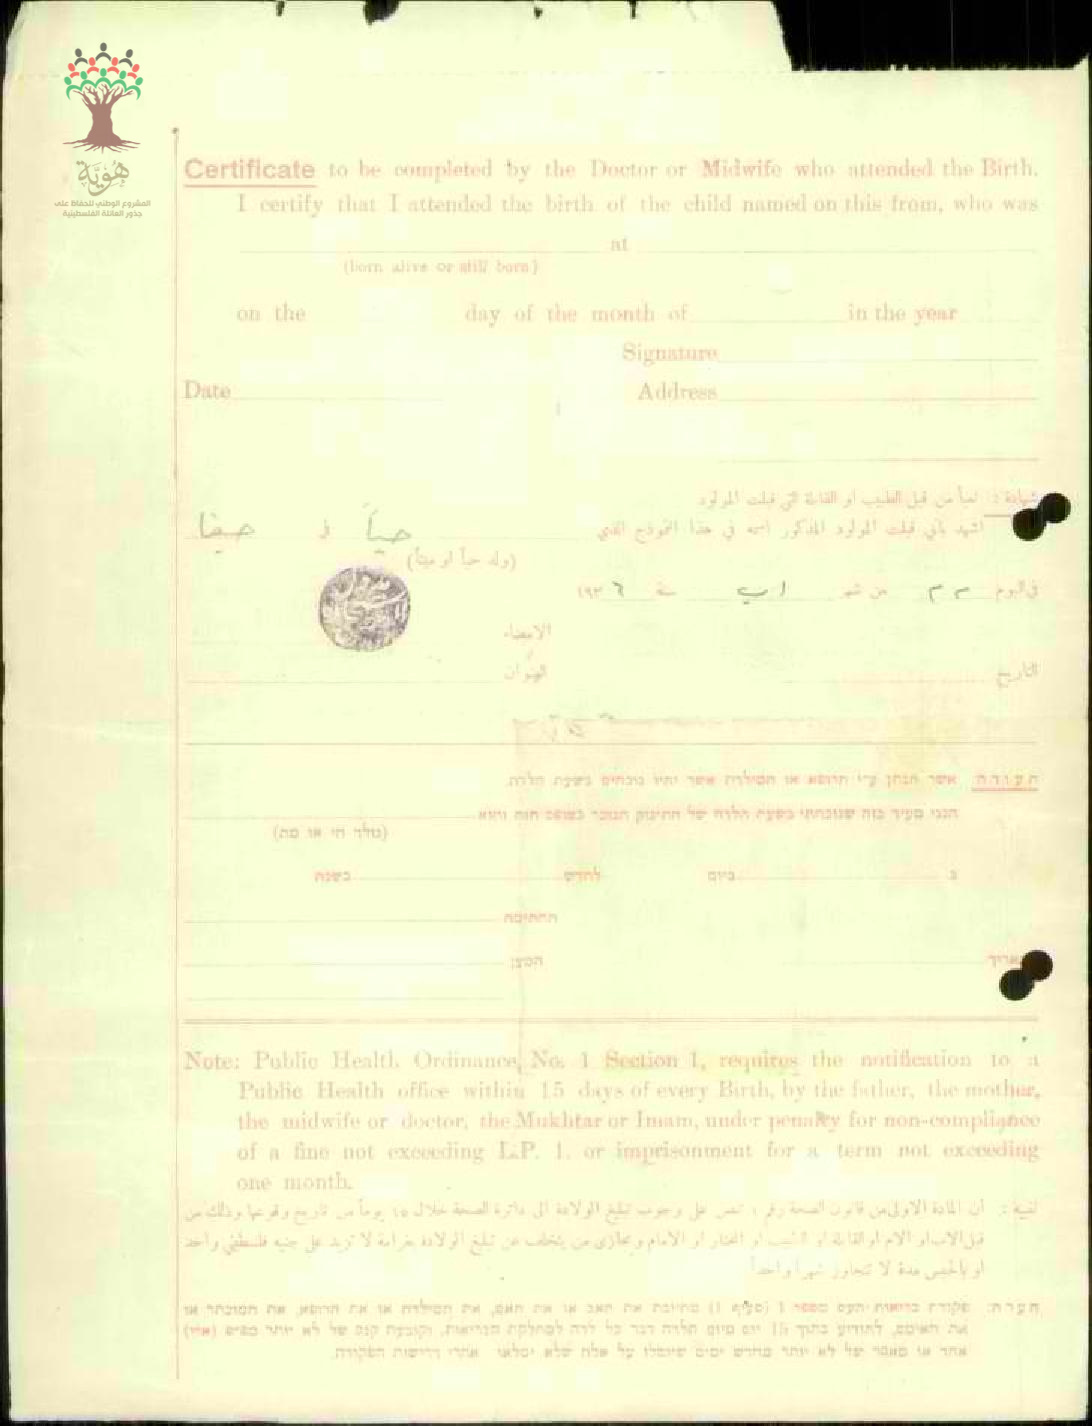 هُوِيَّة
المشروع الوطني للحفاظ على
جذور العائلة الفلسطينية
Certificate to be completed by the Doctor or Midwife who attended the Birth.
I certify that I attended the birth of the child named on this from, who was
at
(born alive or still born)
on the day of the month of in the year
Signature
Date Address
شهادة : تعبأ من قبل الطبيب او القابلة التي قبلت المولود
اشهد بأني قبلت المولود المذكور اسمه في هذا النموذج الذي حياً في حيفا
(ولد حياً او ميتاً)
في اليوم ٢٣ من شهر اب سنة ١٩٣٦
الامضاء
التاريخ العنوان
תעודה אשר תנתן ע״י הרופא או המילדת אשר יהיו נוכחים בשעת הלדה.
הנני מעיד בזה שנוכחתי בשעת הלדה של התינוק הנזכר בטופס הזה והוא
(נולד חי או מת)
ב ביום לחדש בשנת
החתימה
תאריך המען
Note: Public Health Ordinance, No. 1 Section 1, requires the notification to a
Public Health office within 15 days of every Birth, by the father, the mother,
the midwife or doctor, the Mukhtar or Imam, under penalty for non-compliance
of a fine not exceeding L.P. 1. or imprisonment for a term not exceeding
one month.
تنبيه : أن المادة الاولى من قانون الصحة رقم ١ تنص على وجوب تبليغ الولادة الى دائرة الصحة خلال ١٥ يوماً من تاريخ وقوعها وذلك من
قبل الاب او الام او القابلة او الطبيب او المختار او الامام ويجازى من يتخلف عن تبليغ الولادة بغرامة لا تزيد على جنيه فلسطيني واحد
او بالحبس مدة لا تتجاوز شهراً واحداً
הערה: פקודת בריאות העם מספר 1 (סעיף 1) מחייבת את האב או את האם, את המילדת או את הרופא, את המוכתר או
את האימם, להודיע בתוך 15 יום מיום הלדה דבר כל לדה למחלקת הבריאות, וקובעת קנס של לא יותר מפונט (א״י)
אחד או מאסר של לא יותר מחדש ימים שיוטלו על אלה שלא ימלאו אחרי דרישות הפקודה.